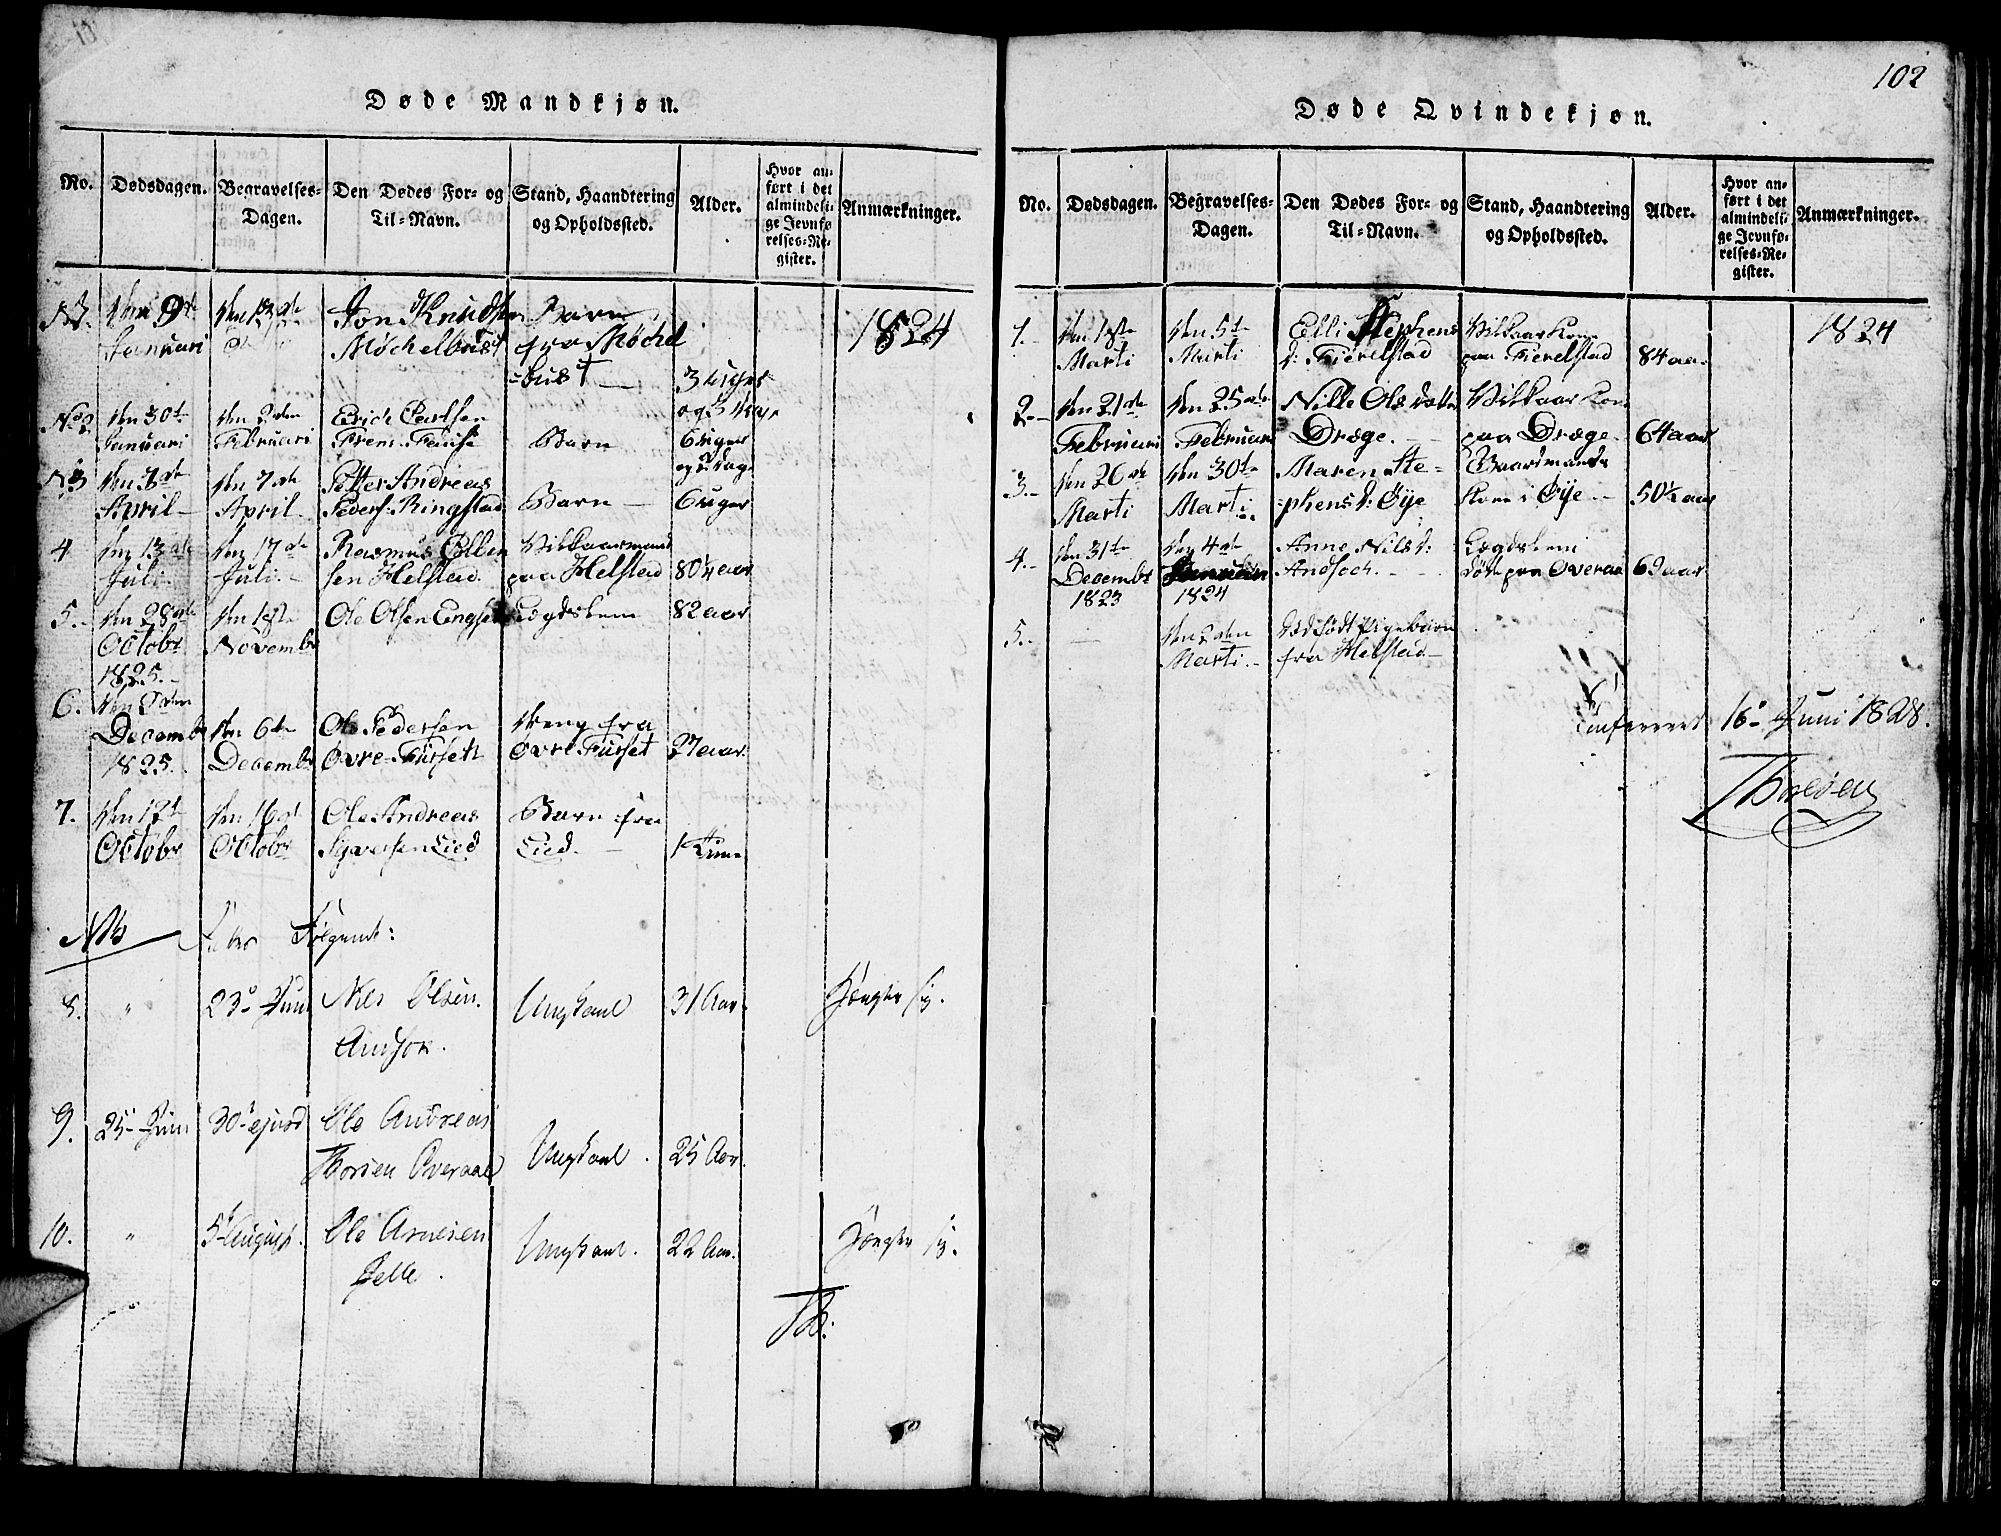 102
Døde Mandkjøn.
No.
Dødsdagen.
Begravelses-
Dagen.
Den Dødes For- og
Til-Navn.
Stand, Haandtering
og Opholdssted.
Alder.
Hvor an-
ført i det
almindeli-
ge Jevnfø-
relses-Re-
gister.
Anmærkninger.
den 9de
Januari
den 13de
Jon Knudsen
Møchelbust
Barn
fra Møchel
-bust
3 uger
1824
No 2
den 30te
Januari
den 2den
Februari
Erich Carlsen
Barn
6 uger
N 3
April
den 7de
April
Petter Andreas
Peders. Ringstad
Barn
6 uger
4
den 13de
Juli
den 17de
Juli
Rasmus Ellen
sen Helstad
Vilkaarsmand
paa Helstad
80¼ aar
5.
den 28de
Octobr
1825.
den 1ste
Novembr
Ole Olsen Engset
Lægdslem
82 aar
6.
den 2den
Decembr
1825.
den 6te
Decembr
Ole Pedersen
Øvre-Furseth
Dreng fra
Øvre Furset
27 aar
7.
den 12te
Octobr
den 16de
Octobr
Ole Andreas
Syversen Lied
Barn fra
Lied.
1 Time
NB
Følgende:
8.
"
23de Juni
Nils Olsen
Andsok.
Ungkarl
31 Aar.
Hængte sig.
9.
25 Juni
30 ejusd
Ole Andreas
Thorsen Overaae
Ungkarl.
25 Aar.
10.
"
5 August.
Ole Arnesen
Jelle.
Ungkarl.
22 Aar.
Hængte sig.
Th.
Døde Qvindekjøn.
No.
Dødsdagen.
Begravelses-
Dagen.
Den Dødes For- og
Til-Navn.
Stand, Haandtering
og Opholdssted.
Alder.
Hvor an-
ført i det
almindeli-
ge Jevnfø-
relses-Re-
gister.
Anmærkninger.
1.
den 1ste
Marti
den 5te
Marti
Elli Stephens
d: Fierelstad
Vilkaar Kone
paa Fierelstad
84 aa.
1824
2.
den 21de
Februari
den 25de
Februari
Nille Olsdatter
Drøge.
Vilkaar Kon
paa Drøge.
64 aar
3.
den 26de
Marti
den 30te
Marti
Maren Ste-
phensd: Øye
Gaardmands
Kone i Øye
50½ aar
4.
den 31te
Decembr
1823
den 4de
1824
Anne Nilsd:
Andsoch.
Lægdslem
død paa Overaa
62 aar
5.
den 2den
Marti
Dødfødt Pigebarn
fra Helstad
Confereret 16de Juni 1828.